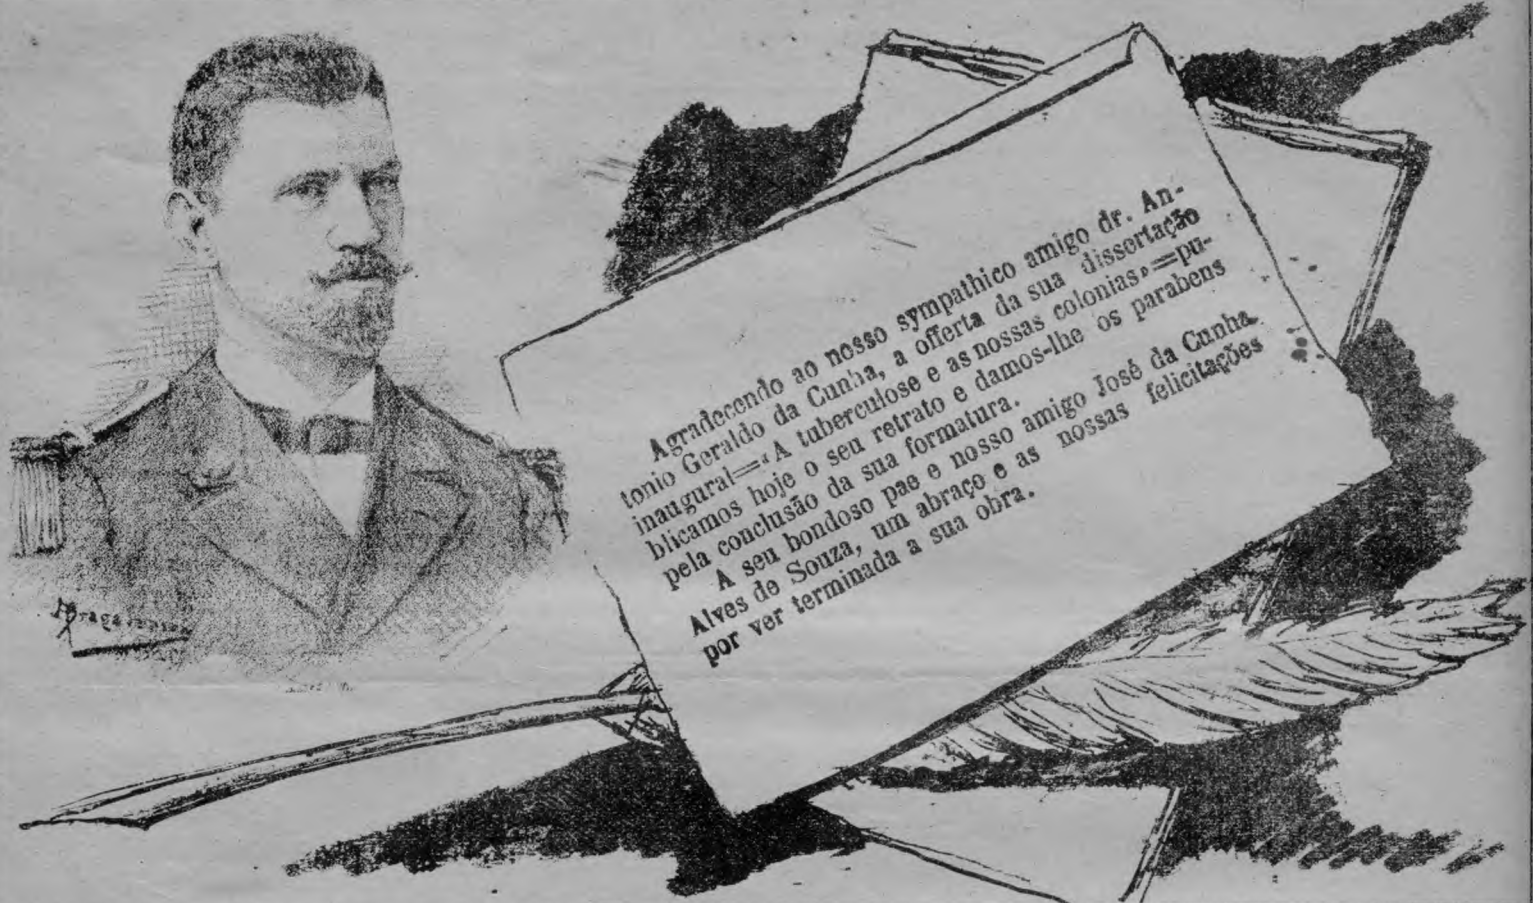 Agradecendo ao nosso sympathico amigo dr. An-
tonio Geraldo da Cunha, a offerta da sua dissertação
inaugural=«A tuberculose e as nossas colonias»=pu-
blicamos hoje o seu retrato e damos-lhe os parabens
pela conclusão da sua formatura.
A seu bondoso pae e nosso amigo José da Cunha
Alves de Souza, um abraço e as nossas felicitações
por ver terminada a sua obra.